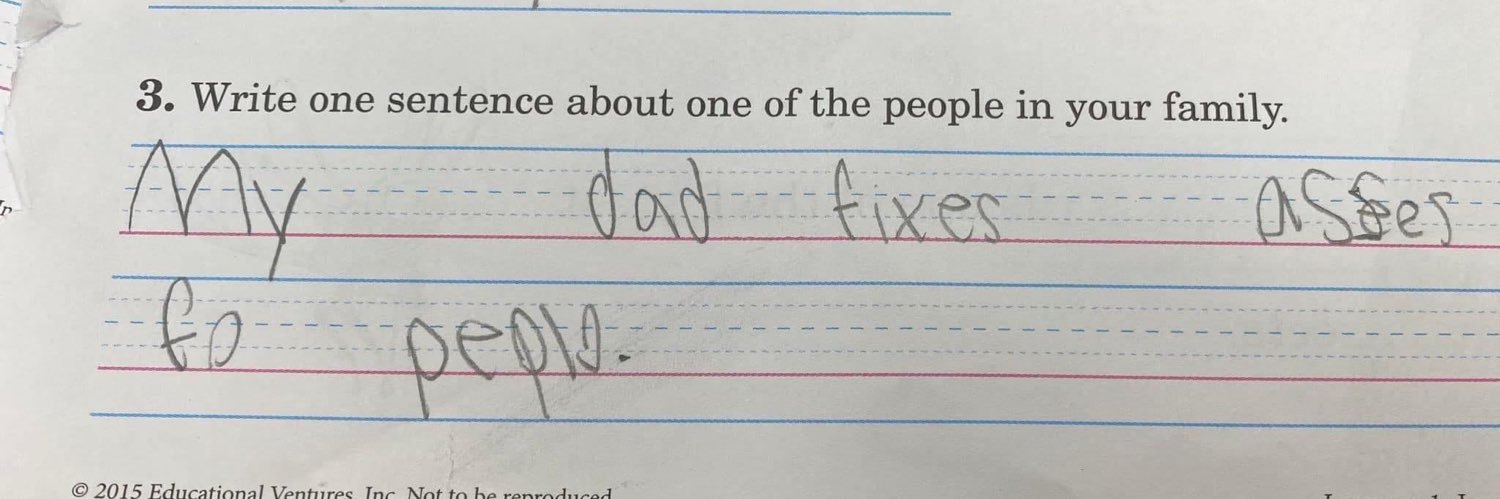 3. Write one sentence about one of the people in your family.
My dad fixes asses
fo peplo.
© 2015 Educational Ventures, Inc. Not to be reproduced